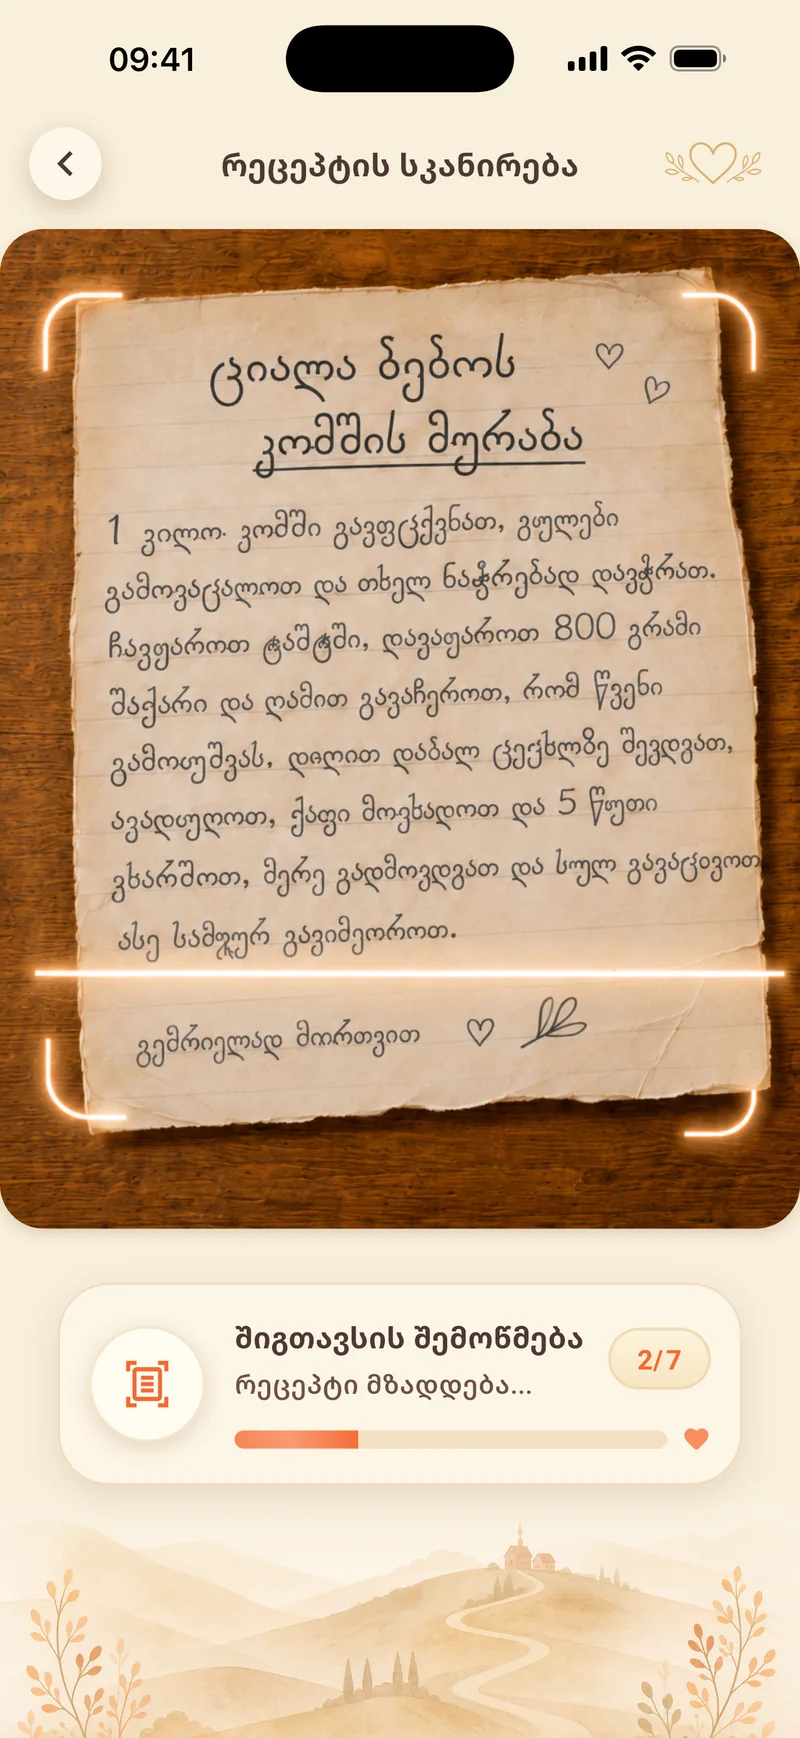 09:41
რეცეპტის სკანირება
ციალა ბებოს
კომშის მურაბა
1 კილო კომში გავფცქვნათ, გულები
გამოვაცალოთ და თხელ ნაჭრებად დავჭრათ.
ჩავყაროთ ტაშტში, დავაყაროთ 800 გრამი
შაქარი და ღამით გავაჩეროთ, რომ წვენი
გამოუშვას. დილით დაბალ ცეცხლზე შევდგათ,
ავადუღოთ, ქაფი მოვხადოთ და 5 წუთი
ვხარშოთ, მერე გადმოვდგათ და სულ გავაციოვოთ
ასე სამჯურ გავიმეოროთ.
გემრიელად მიირთვით
შიგთავსის შემოწმება
2/7
რეცეპტი მზადდება...